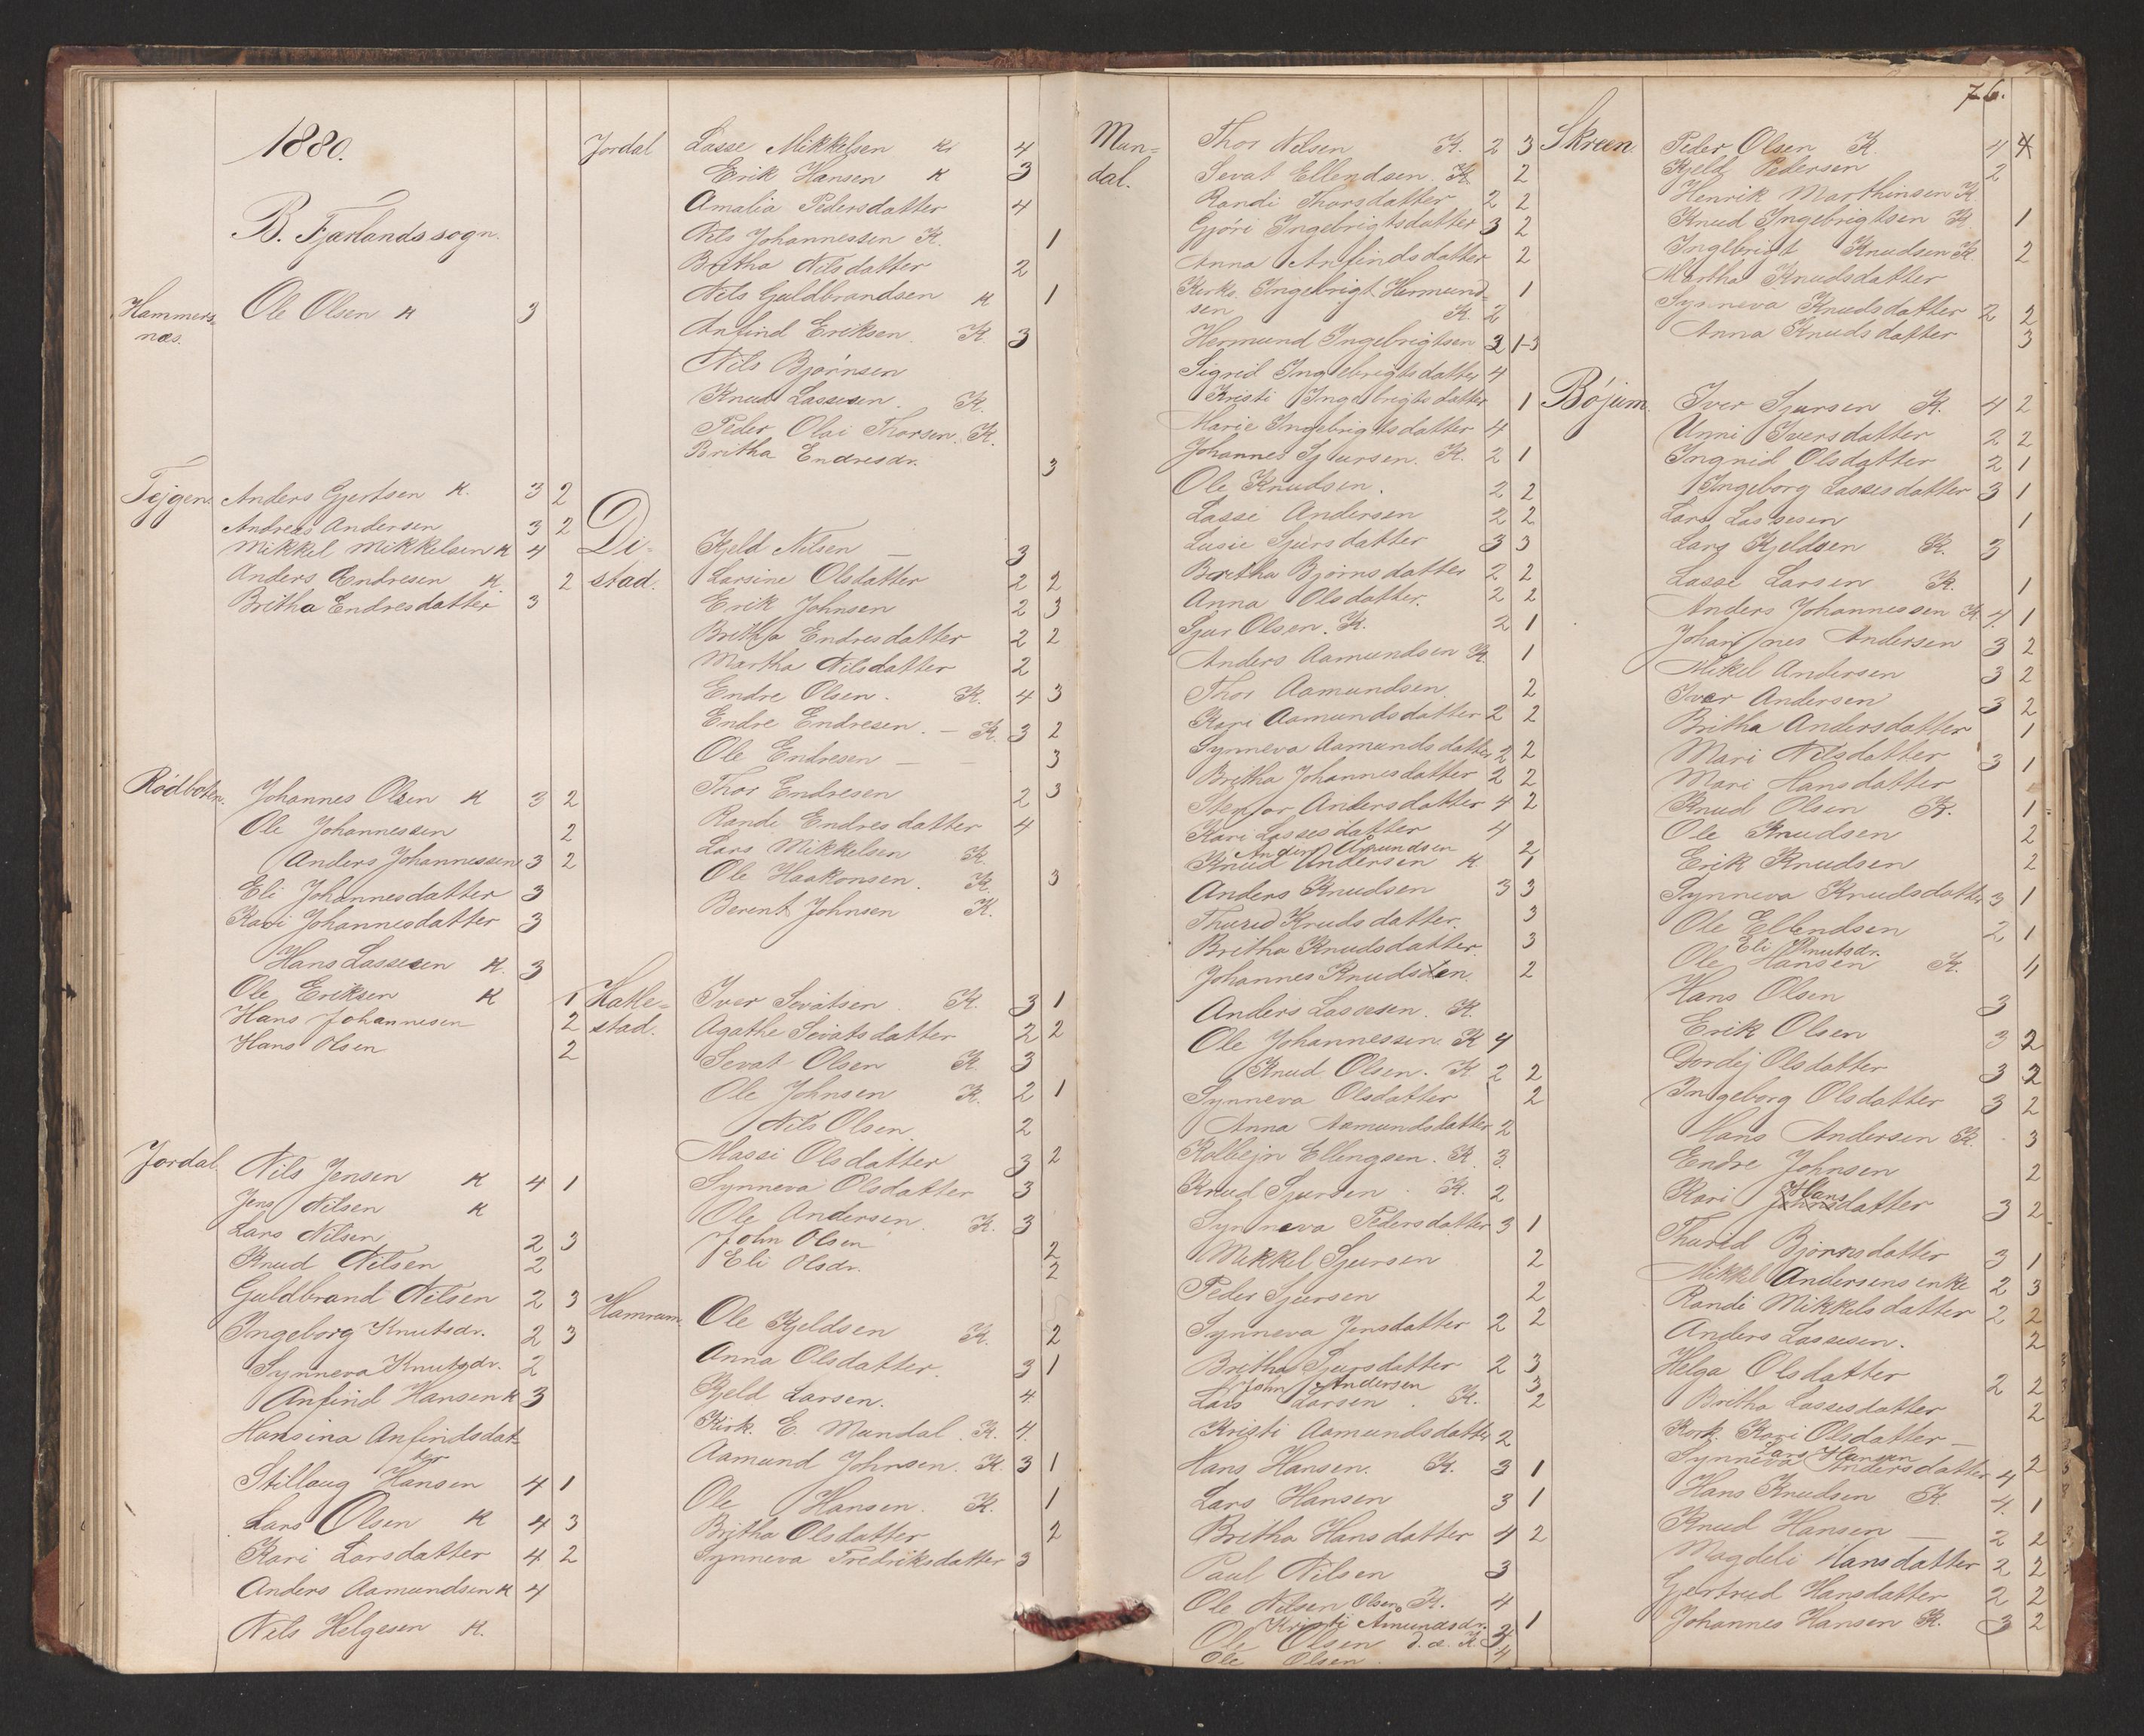 1880.
B. Fjærlands sogn.
Hammers- Ole Olsen K 3
næs.
Tejgen. Anders Gjertsen K. 3 2
Andreas Andersen 3 2
Mikkel Mikkelsen K 4
Anders Endresen K. 2
Britha Endresdatter 3
Rødboten. Johannes Olsen K 3 2
Ole Johannessen 2
Anders Johannessen 3 2
Eli Johannesdatter 3
Kari Johannesdatter 3
Hans Lassesen K. 3
Ole Eriksen K 1
Hans Johannesen 2
Hans Olsen 2
Jordal Nils Jensen K 4 1
Jens Nilsen K
Lars Nilsen 2 3
Knud Nilsen 2
Guldbrand Nilsen 2 3
Ingeborg Knutsdr. 2 3
Synneva Knutsdr. 2
Anfind Hansen K 3
Hansina Anfindsdat-
ter
Stillaug Hansen 4 1
Lars Olsen K 4 3
Kari Larsdatter 4 2
Anders Aamundsen K 4
Nils Helgesen K.
Jordal Lasse Mikkelsen K 4
Erik Hansen K 3
Amalia Pedersdatter 4
Nils Johannessen K. 1
Britha Nilsdatter 2
Nils Guldbrandsen K 1
Anfind Eriksen K 3
Nils Bjørnsen
Knud Lassesen. K.
Peder Olai Thorsen. K.
Britha Endresdr. 3
Di- Kjeld Nilsen — 3
stad. Larsine Olsdatter 2 2
Erik Johnsen 2 3
Britha Endresdatter 2 2
Martha Nilsdatter 2
Endre Olsen. K. 4 3
Endre Endresen. — K. 3 2
Ole Endresen — — 3
Thor Endresen 2 3
Randi Endresdatter 4
Lars Mikkelsen K.
Ole Haakonsen. K. 3
Berent Johnsen K.
Hatle- Iver Sevatsen. K. 3 1
stad. Agathe Sevatsdatter 2 2
Sevat Olsen K. 3
Ole Johnsen K. 2 1
Nils Olsen 2
Massi Olsdatter 3 2
Synneva Olsdatter 3
Ole Andersen. K. 3
John Olsen 2
Eli Olsdr. 2
Hamrum. Ole Kjeldsen K. 2
Anna Olsdatter. 3 1
Kjeld Larsen. 4
Kirk. E. Mundal. K. 4
Aamund Johnsen. K. 3 1
Ole Hansen. K. 1
Britha Olsdatter 2
Synneva Fredriksdatter 3
Mun- Thor Nilsen K. 2 3
dal. Sevat Ellendsen. K 2
Randi Thorsdatter 2 2
Gjøri Ingebrigtsdatter 3 2
Anna Anfindsdatter 2
Kirks. Ingebrigt Hermund- 1
sen K. 2
Hermund Ingebrigtsen 3 1-3
Sigrid Ingebrigtsdatter 4
Kristi Ingebrigtsdatter 1
Marie Ingebrigtsdatter 4
Johannes Sjursen. K. 2 1
Ole Knudsen. 2 2
Lasse Andersen 2 2
Lusie Sjursdatter 3 3
Britha Bjørnsdatter 2 2
Anna Olsdatter. 2 2
Sjur Olsen. K. 2 1
Anders Aamundsen K. 1
Thor Aamundsen. 2
Kari Aamundsdatter 2 2
Synneva Aamundsdatter 2 2
Britha Johannesdatter 2 2
Andersdatter 4 2
Kari Lassesdatter 4
Anders Åmundsen 2
Knud Andersen K 1
Anders Knudsen 3 3
Thurid Knudsdatter. 3
Britha Knudsdatter. 3
Johannes Knudsen 2
Anders Lassesen. K.
Ole Johannessen K 4
Knud Olsen. K 2 2
Synneva Olsdatter 2
Anna Aamundsdatter 2
Kolbejn Ellingsen. K. 3.
Knud Sjursen. K. 2
Synneva Pedersdatter 3 1
Mikkel Sjursen 2
Peder Sjursen 2
Synneva Jensdatter 2 2
Britha Sjursdatter 2 3
John Andersen 3
Lars Larsen. K. 2
Kristi Aamundsdatter 2
Hans Hansen. K. 3 1
Lars Hansen 3 1
Britha Hansdatter 4 2
Paul Nilsen 3
Ole Nilsen Olsen K. 4
Kristi Åmundsdr. 1
Ole Olsen d. æ. K 3
Ole Olsen. 4
76.
Skreen. Peder Olsen K. 4 4
Kjeld Pedersen 2
Henrik Marthinsen K.
Knud Ingebrigtsen K 1
Ingebrigt Knudsen K. 2
Martha Knudsdatter
Synneva Knudsdatter 2 2
Anna Knudsdatter 3
Bøjum. Iver Sjursen K. 4 2
Unni Iversdatter 2 2
Ingrid Olsdatter 2 1
Ingeborg Lassesdatter 3 1
Lars Lassesen 1
Lars Kjeldsen K. 3
Lasse Larsen K. 1
Anders Johannessen K. 4. 1
Johannes Andersen 3 2
Mikel Andersen 3 2
Iver Andersen 3 2
Britha Andersdatter 1
Mari Nilsdatter 3 1
Mari Hansdatter
Knud Olsen K. 1
Ole Knudsen 2
Erik Knudsen 2
Synneva Knudsdatter 3 1
Ole Ellendsen 2 1
Eli Knutsdr.
Ole Hansen K. 4
Hans Olsen 3
Erik Olsen 3 2
Dordej Olsdatter 3 2
Ingeborg Olsdatter 3 2
Hans Andersen K. 3
Endre Johnsen 2
Hans
Kari Johnsdatter 3 2
Thurid Bjørnsdatter 3 1
Mikkel Andersens enke 2 3
Randi Mikkelsdatter 2 2
Anders Lassesen. 2
Helga Olsdatter 2 2
Britha Lassesdatter 2
Kork. Kari Olsdatter —
Lars Hansen 2
Synneva Andersdatter 4
Hans Knudsen K 4. 1
Knud Hansen — 2 2
Magdeli Hansdatter 2 2
Gjertrud Hansdatter 2 2
Johannes Hansen K. 3 2